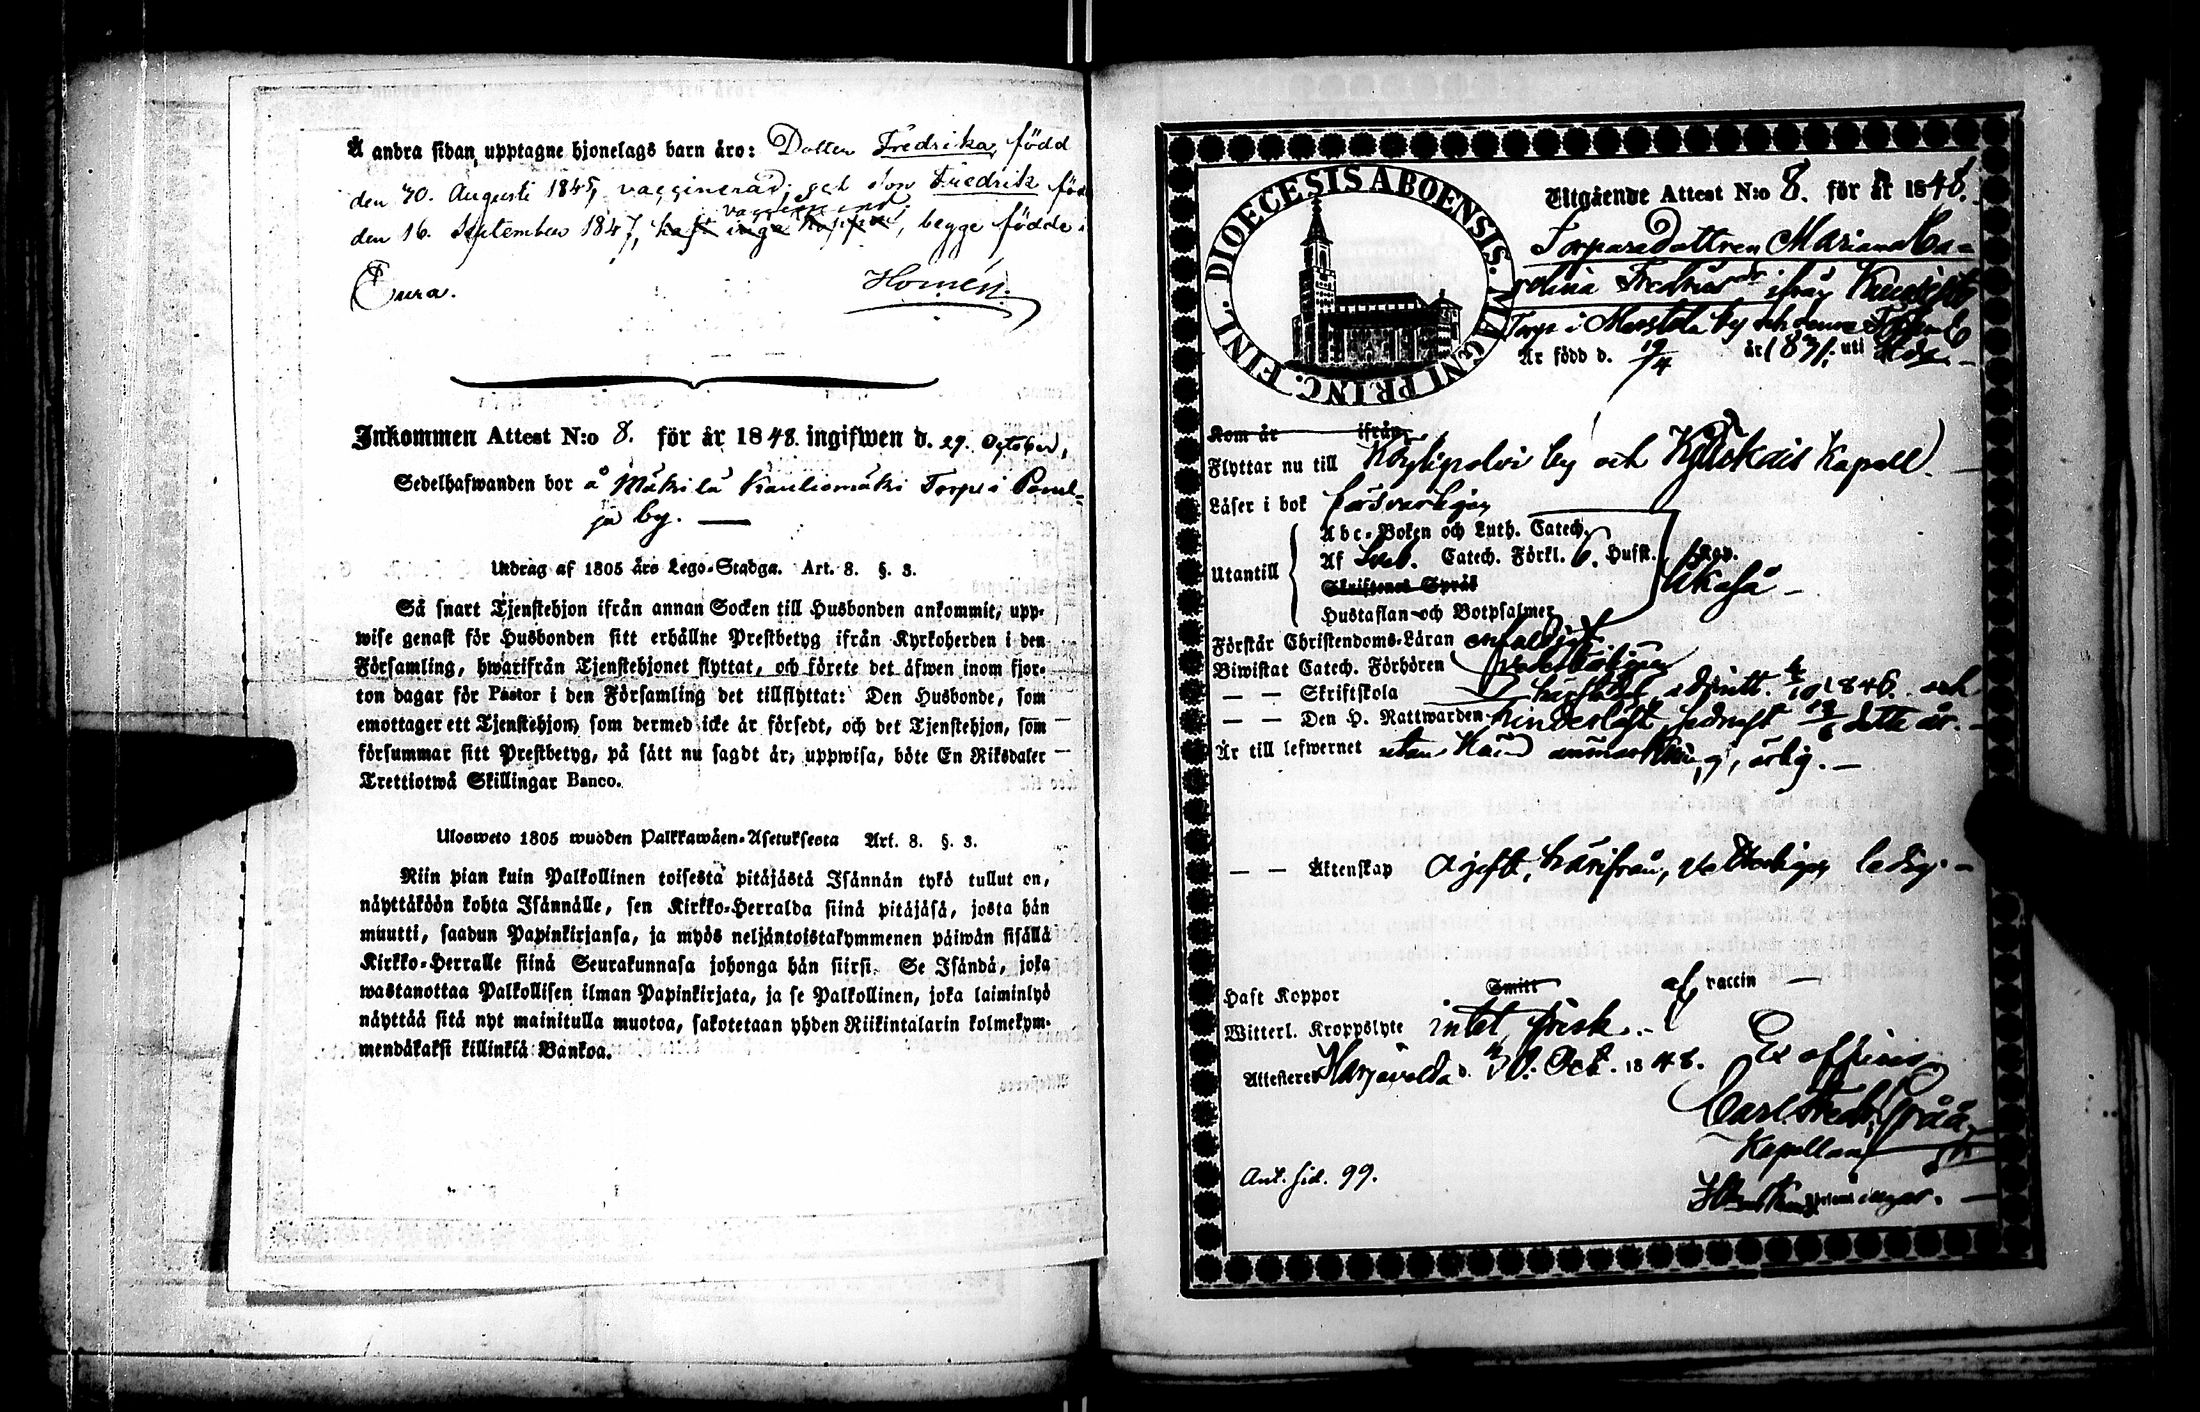 Å andra sidan upptagne hjonelags barn äro: Dotter Fredrika, född
den 30. Augusti 1845, vaccinerad; och Son Fredrik föd
vaccinerad
den 16. September 1847, haft inga koppor, begge födde i
Eura. Homén.
Inkommen Attest N:o 8. för år 1848. ingifwen d. 29. October,
Sedelhafwanden bor å Mäkilä Krauliomäki Torp i Panel-
ja by.
Utdrag af 1805 års Lego-Stadga. Art. 8. §. 3.
Så snart Tjenstehjon ifrån annan Socken till Husbonden ankommit, upp-
wise genast för Husbonden sitt erhållne Prestbetyg ifrån Kyrkoherden i den
Församling, hwarifrån Tjenstehjonet flyttat, och förete det äfwen inom fjor-
ton dagar för Pastor i den Församling det tillflyttat: Den Husbonde, som
emottager ett Tjenstehjon, som dermed icke är försedt, och det Tjenstehjon, som
försummar sitt Prestbetyg, på sätt nu sagdt är, uppwisa, böte En Riksdaler
Trettiotwå Skillingar Banco.
Ulosweto 1805 wuoden Palkkawäen-Asetuksesta Art. 8. §. 3.
Niin pian kuin Palkollinen toisesta pitäjästä Isännän tykö tullut on,
näyttäköön kohta Isännälle, sen Kirkko-Herralda siinä pitäjäsä, josta hän
muutti, saadun Papinkirjansa, ja myös neljäntoistakymmenen päiwän sisällä
Kirkko-Herralle siinä Seurakunnasa johonga hän siirsi. Se Isändä, joka
wastanottaa Palkollisen ilman Papinkirjata, ja se Palkollinen, joka laiminlyö
näyttää sitä nyt mainitulla muotoa, sakotetaan yhden Riikintalarin kolmekym-
mendäkaksi killinkiä Bankoa.
DIOECESIS ABOENSIS. MAGNI PRINC. FINL.
Utgående Attest N:o 8. för år 1848.
Torparedottren Mariana Ca-
rolina Fredriksdr ifrån
Torp i Merstola by och denne
Är född d. 19/4 år 1831. uti
Kom år ifrån
Flyttar nu till Köyliypolvi by och Kjulokais Kapell.
Läser i bok försvarligen
Abc-Boken och Luth. Catech.
Utantill Af Sveb. Catech. Förkl. 6. Hufst. kap.
Skriftenes Språk likaså
Hustaflan och Botpsalmer
Förstår Christendoms-Läran enfaldigt
Biwistat Catech. Förhören
— — Skriftskola admitt. 1846. och
— — Den H. Nattwarden sednast dette år.
Är till lefwernet utan känd anmärkning, ärlig.
— — Äktenskap ogift, härifrån, ledig.
Haft Koppor Smitt af vaccin
Witterl. Kroppslyte intet frisk.
Attesteras Harjavalda d. 20. Oct. 1848. Ex officio
Carl Fredr. Gråå
Kapellan
Ank. sid. 99.